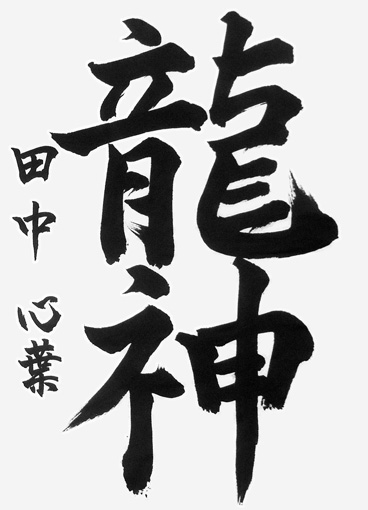 龍神
田中心葉